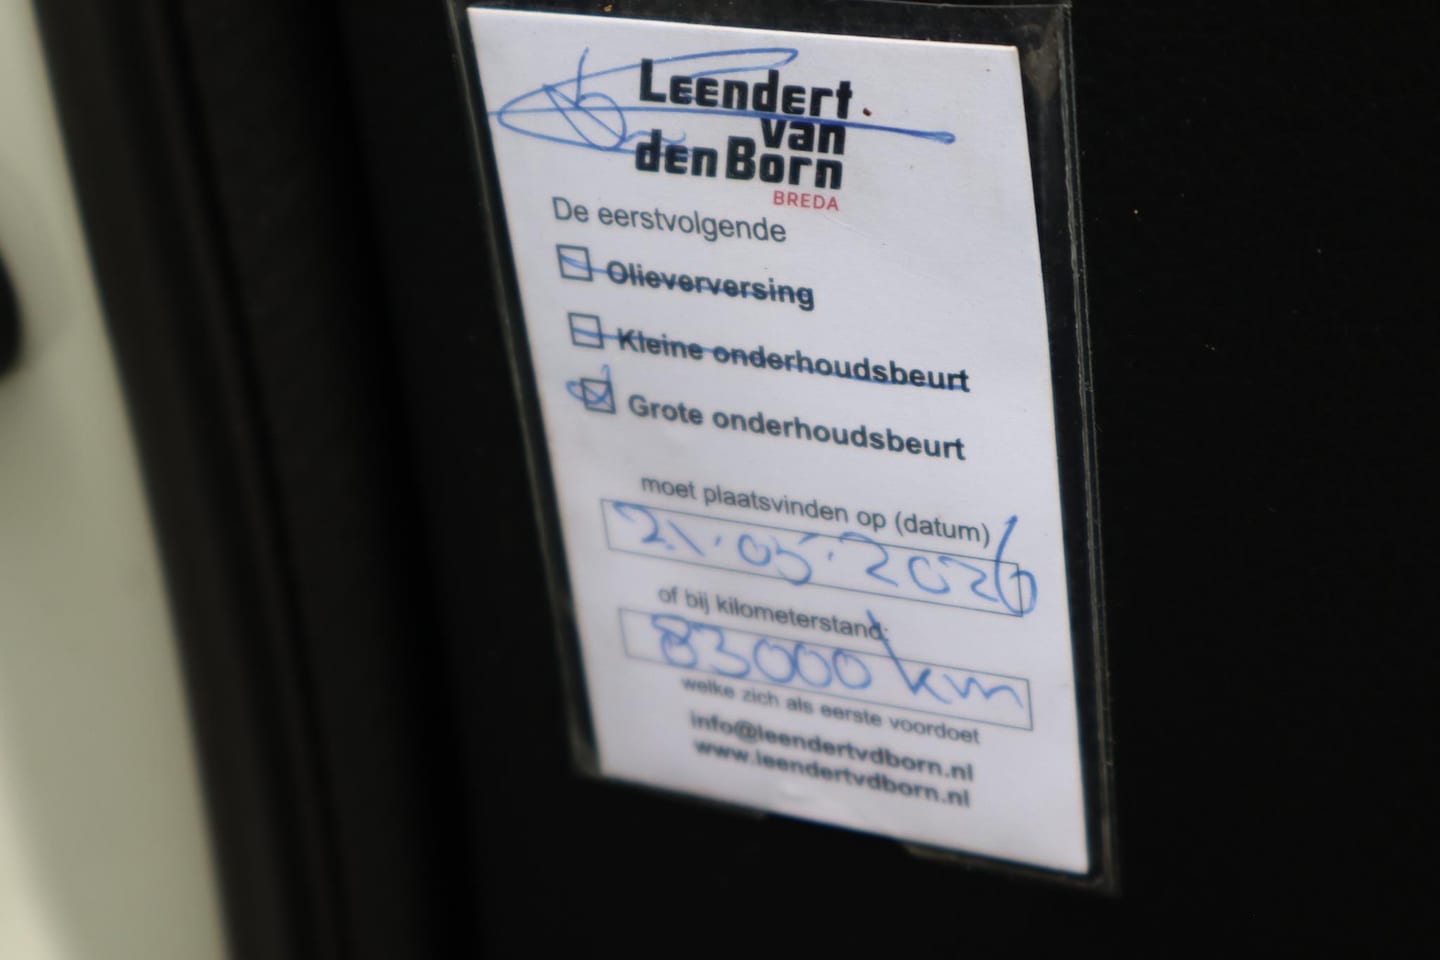 Leendert
van
den Born
BREDA
De eerstvolgende
Olieverversing
Kleine onderhoudsbeurt
Grote onderhoudsbeurt
moet plaatsvinden op (datum)
21.05.2026
of bij kilometerstand:
83000 km
welke zich als eerste voordoet
info@leendertvdborn.nl
www.leendertvdborn.nl